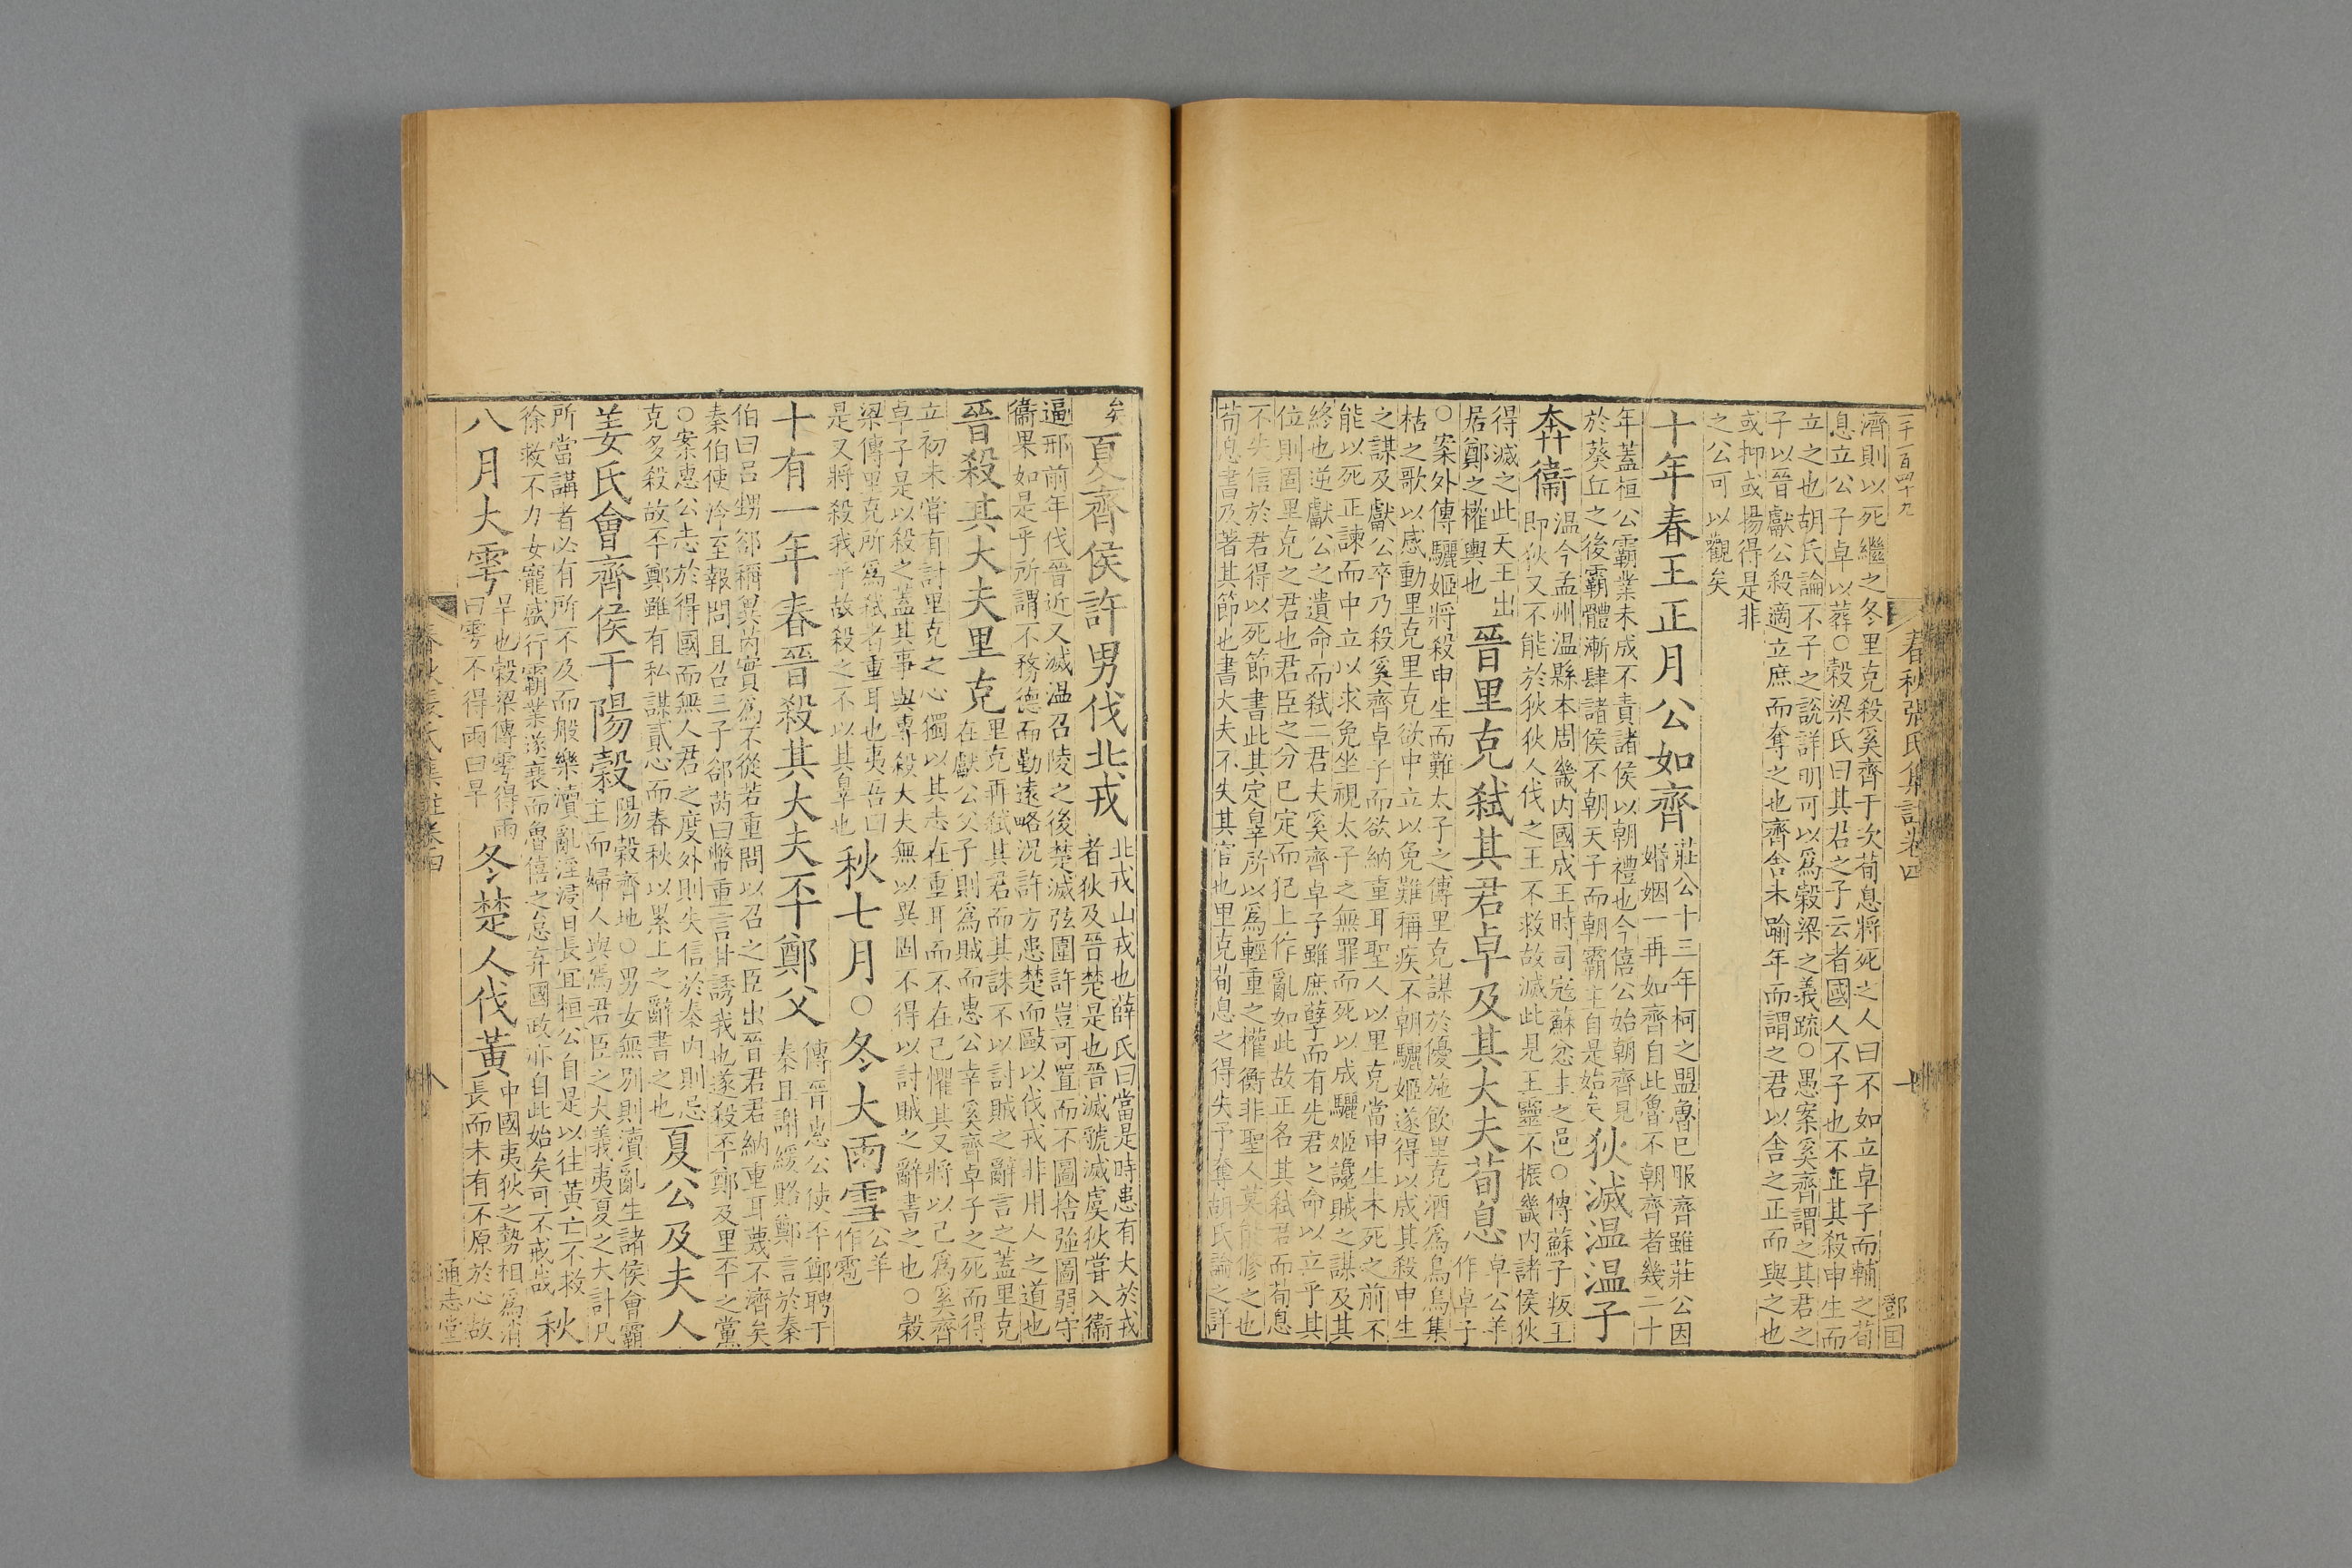 二千一百四十九
春秋張氏集註卷四
鄧国
濟則以死繼之冬里克殺奚齊于次荀息將死之人曰不如立卓子而輔之荀
息立公子卓以葬○穀梁氏曰其君之子云者國人不子也不正其殺申生而
立之也胡氏論不子之說詳明可以爲穀梁之義疏○愚案奚齊謂之其君之
子以晉獻公殺適立庶而奪之也齊舍未踰年而謂之君以舍之正而與之也
或抑或揚得是非
之公可以觀矣
十年春王正月公如齊
莊公十三年柯之盟魯已服齊雖莊公因
婚姻一再如齊自此魯不朝齊者幾二十
年蓋桓公霸業未成不責諸侯以朝禮也今僖公始朝齊見
於葵丘之後霸體漸肆諸侯不朝天子而朝霸主自是始矣
狄滅温温子
奔衞
温今孟州温縣本周畿内國成王時司寇蘇忿生之邑○傳蘇子叛王
即狄又不能於狄狄人伐之王不救故滅此見王靈不振畿内諸侯狄
得滅之此天王出
居鄭之權輿也
晉里克弑其君卓及其大夫荀息
卓公羊
作卓子
○案外傳驪姬將殺申生而難太子之傳里克謀於優施飲里克酒爲鳥烏集
枯之歌以感動里克里克欲中立以免難稱疾不朝驪姬遂得以成其殺申生
之謀及獻公卒乃殺奚齊卓子而欲納重耳聖人以里克當申生未死之前不
能以死正諫而中立以求免坐視太子之無罪而死以成驪姬讒賊之謀及其
終也逆獻公之遺命而弑二君夫奚齊卓子雖庶孽而有先君之命以立乎其
位則固里克之君也君臣之分已定而犯上作亂如此故正名其弑君而荀息
不失信於君得以死節書此其定辠所以爲輕重之權衡非聖人莫能修之也
荀息書及著其節也書大夫不失其官也里克荀息之得失予奪胡氏論之詳
矣
夏齊侯許男伐北戎
北戎山戎也薛氏曰當是時患有大於戎
者狄及晉楚是也晉滅虢滅虞狄嘗入衞
逼邢前年伐晉近又滅温召陵之後楚滅弦圍許豈可置而不圖捨強圖弱守
衞果如是乎所謂不務德而勤遠略況許方患楚而敺以伐戎非用人之道也
晉殺其大夫里克
里克再弑其君而其誅不以討賊之辭言之蓋里克
在獻公父子則爲賊而惠公幸奚齊卓子之死而得
立初未嘗有討里克之心獨以其志在重耳而不在己懼其又將以己爲奚齊
卓子是以殺之蓋其事與專殺大夫無以異固不得以討賊之辭書之也○穀
梁傳里克所爲弑者重耳也夷吾曰
是又將殺我乎故殺之不以其辠也
秋七月○冬大雨雪
公羊
作雹
十有一年春晉殺其大夫丕鄭父
傳晉惠公使丕鄭聘于
秦且謝緩賂鄭言於秦
伯曰吕甥郤稱冀芮實爲不從若重問以召之臣出晉君君納重耳蔑不濟矣
秦伯使泠至報問且召三子郤芮曰幣重言甘誘我也遂殺丕鄭及里丕之黨
○案惠公志於得國而無人君之度外則失信於秦内則忌
克多殺故丕鄭雖有私謀貳心而春秋以累上之辭書之也
夏公及夫人
姜氏會齊侯于陽穀
陽穀齊地○男女無别則瀆亂生諸侯會霸
主而婦人與焉君臣之大義夷夏之大計凡
所當講者必有所不及而般樂瀆亂淫浸日長宜桓公自是以往黄亡不救
徐救不力女寵盛行霸業遂衰而魯僖之怠弃國政亦自此始矣可不戒哉
秋
八月大雩
旱也穀梁傳雩得雨
曰雩不得雨曰旱
冬楚人伐黃
中國夷狄之勢相爲消
長而未有不原於心故
春秋張氏集註卷四
八
通志堂